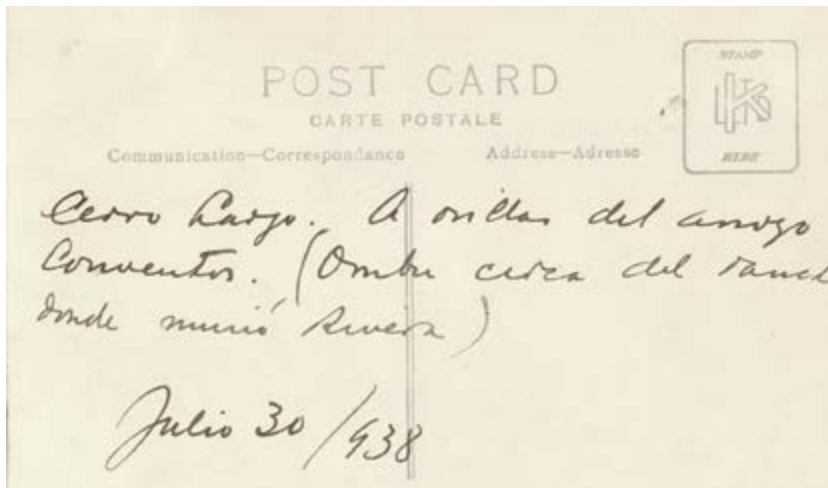 POST CARD
CARTE POSTALE
Communication—Correspondance
Address—Adresse
STAMP
HERE
Cerro Largo. A orillas del arroyo
Conventos. (Ombu cerca del ranch
donde murió Rivera)
Julio 30/938